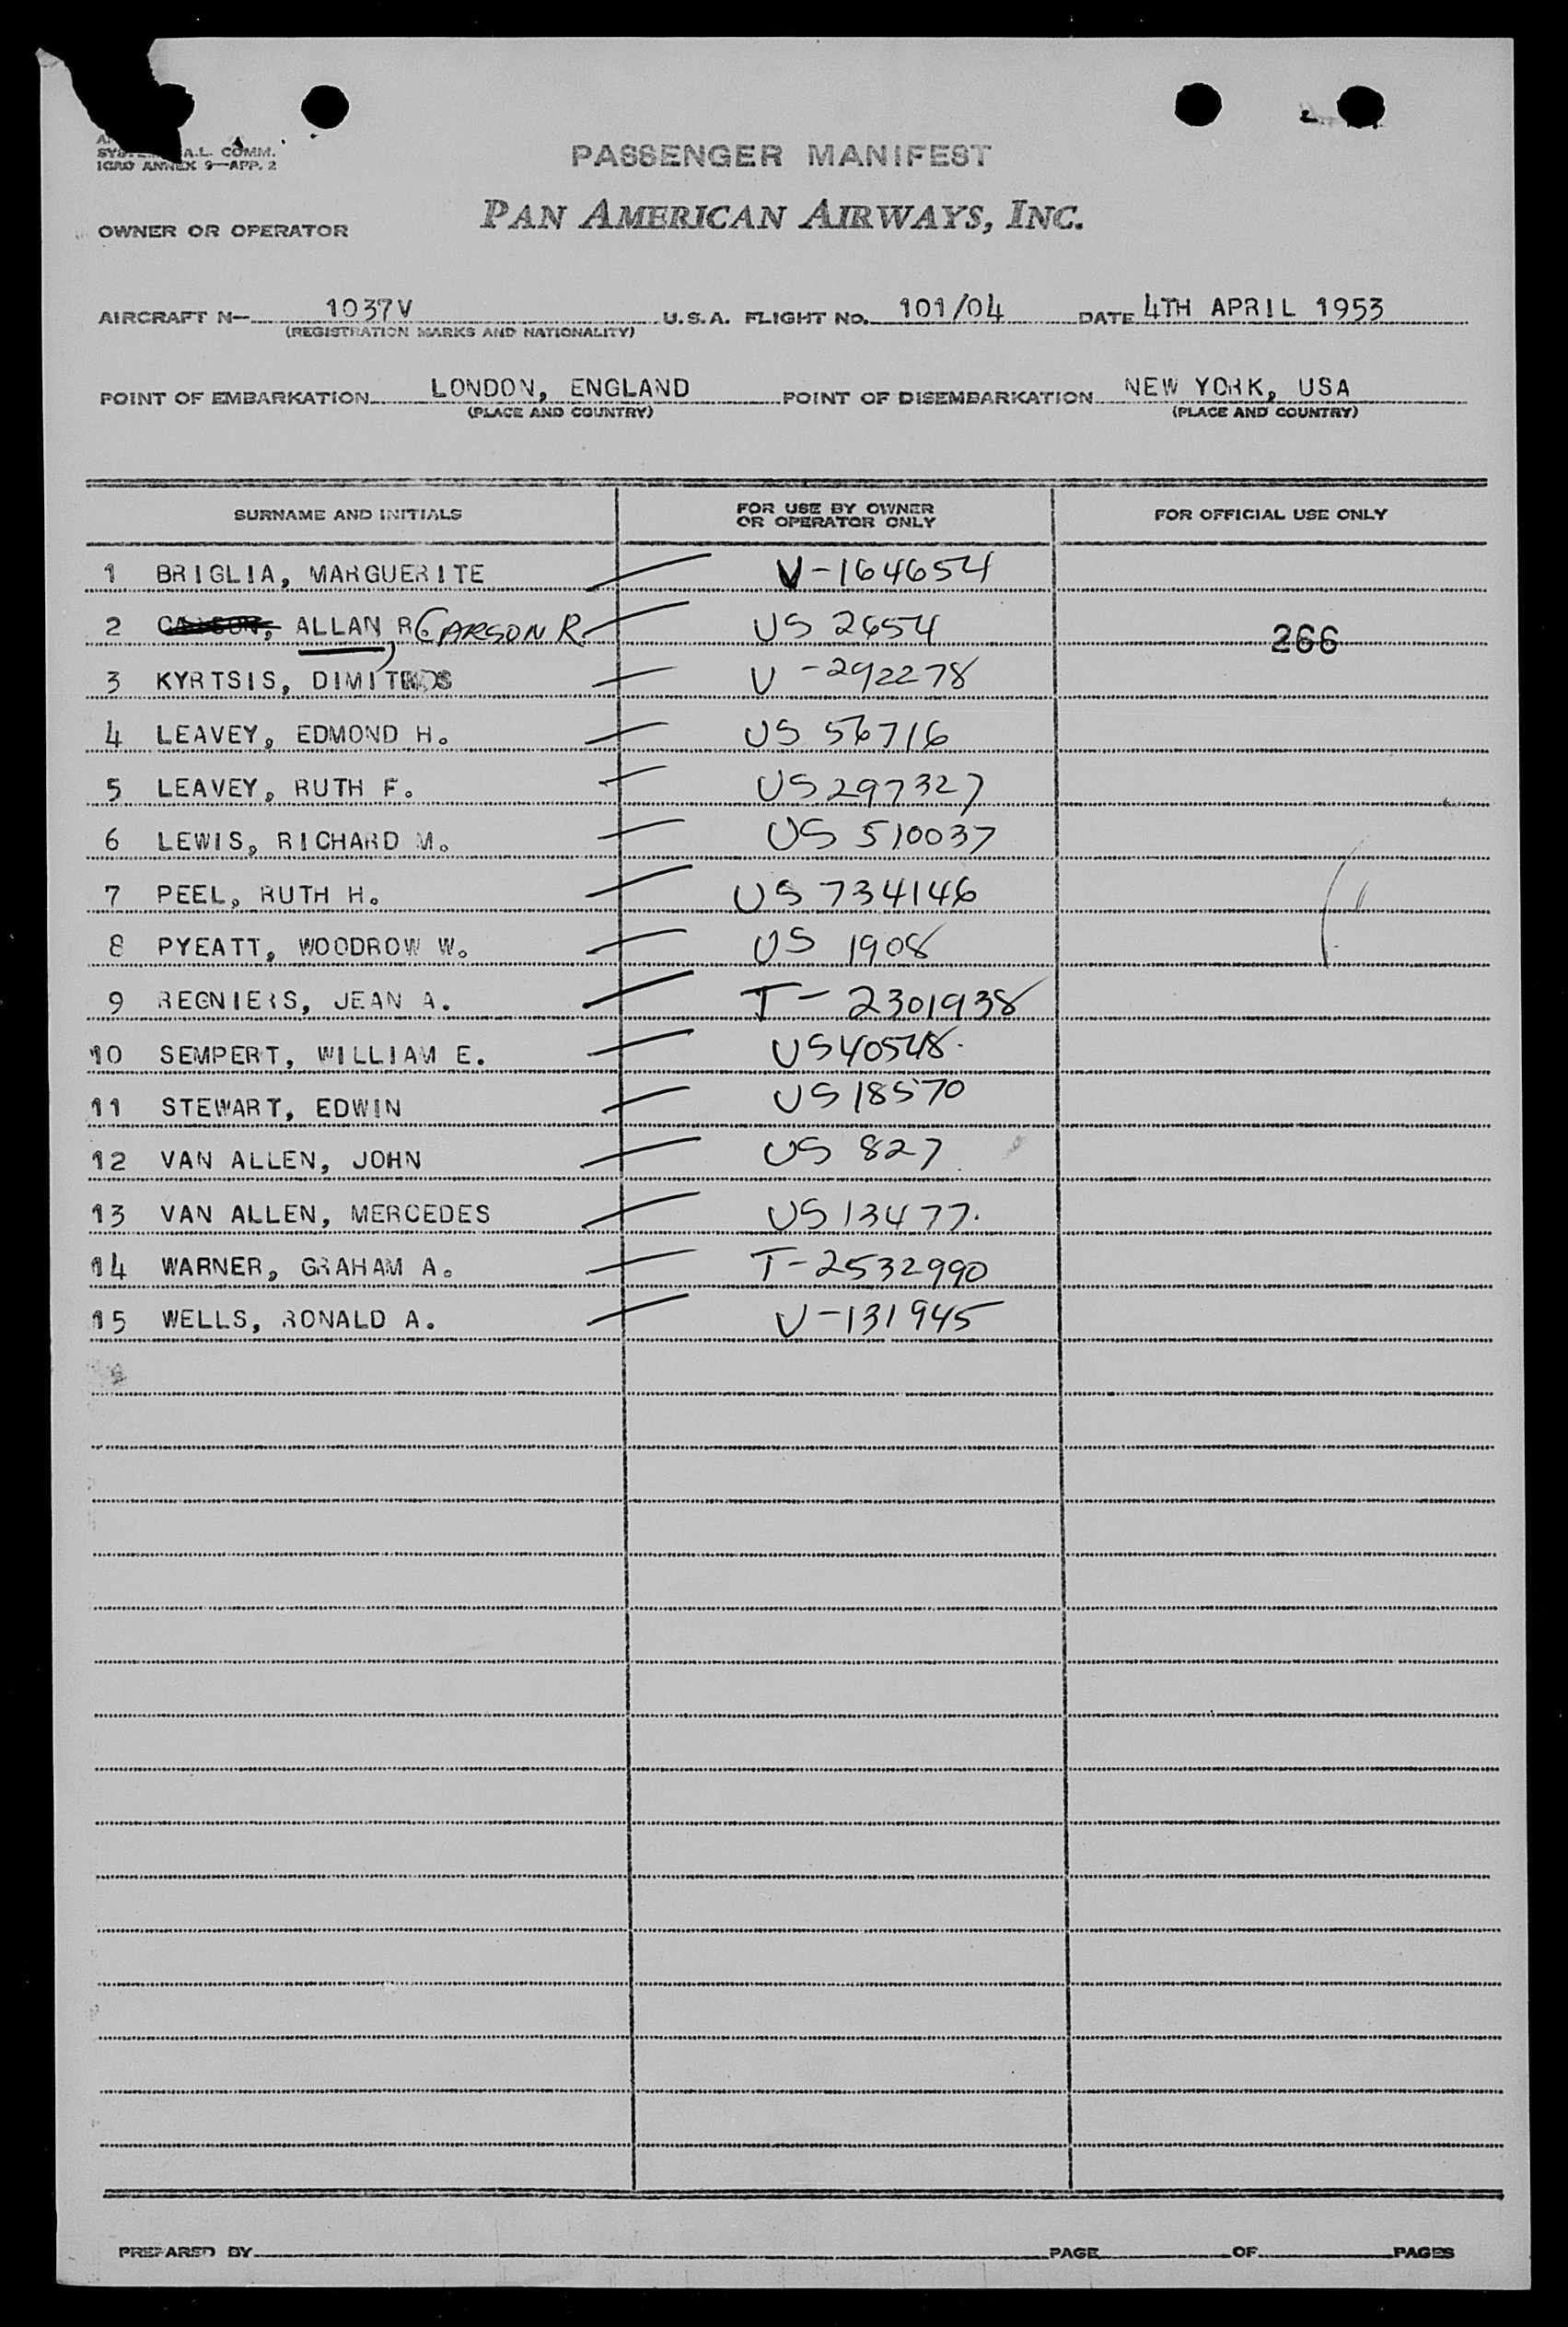 A.L. COMM.
ICAO ANNEX 9—APP. 2
PASSENGER MANIFEST
OWNER OR OPERATOR PAN AMERICAN AIRWAYS, INC.
AIRCRAFT N— 1037V U.S.A. FLIGHT NO. 101/04 DATE 4TH APRIL 1953
(REGISTRATION MARKS AND NATIONALITY)
POINT OF EMBARKATION LONDON, ENGLAND POINT OF DISEMBARKATION NEW YORK, USA
(PLACE AND COUNTRY) (PLACE AND COUNTRY)
SURNAME AND INITIALS FOR USE BY OWNER OR OPERATOR ONLY FOR OFFICIAL USE ONLY
1 BRIGLIA, MARGUERITE V-164654
2 CARSON, ALLAN, R. CARSON R. US 2654 266
3 KYRTSIS, DIMITRIOS V-292278
4 LEAVEY, EDMOND H. US 56716
5 LEAVEY, RUTH F. US 297327
6 LEWIS, RICHARD M. US 510037
7 PEEL, RUTH H. US 734146
8 PYEATT, WOODROW W. US 1908
9 REGNIERS, JEAN A. T-2301938
10 SEMPERT, WILLIAM E. US 40548.
11 STEWART, EDWIN US 18570
12 VAN ALLEN, JOHN US 827
13 VAN ALLEN, MERCEDES US 13477.
14 WARNER, GRAHAM A. T-2532990
15 WELLS, RONALD A. V-131945
PREPARED BY PAGE OF PAGES